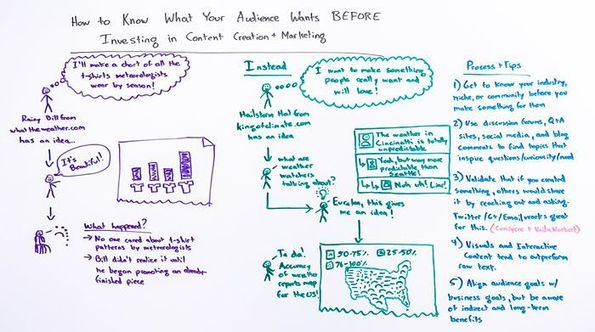 How to Know What Your Audience Wants BEFORE
Investing in Content Creation + Marketing
I'll make a chart of all the
t-shirts meteorologists
wear by season!
Rainy Bill from
whatheweather.com
has an idea...
It's
Beautiful!
What happened?
→ No one cared about t-shirt
patterns by meteorologists
→ Bill didn't realize it until
he began promoting an already-
finished piece
Instead
I want to make something
people really want and
will love!
Hailstone Hal from
kingofclimate.com
has an idea
what are
weather
watchers
talking about?
The weather in
Cincinatti is totally
unpredictable
Yeah, but way more
predictable than
Seattle!
Nuh uh! Line!
Eureka, this gives
me an idea!
To do:
Accuracy
of weather
reports map
for the US!
50-75%
25-50%
76-100%
Process + Tips
1) Get to know your industry,
niche, or community before you
make something for them
2) Use discussion forums, Q+A
sites, social media, and blog
comments to find topics that
inspire questions/curiosity/need
3) Validate that if you created
something, others would share
it by reaching out and asking.
Twitter/G+/Email work great
for this.
4) Visuals and Interactive
Content tend to outperform
raw text.
5) Align audience goals w/
business goals, but be aware
of indirect and long-term
benefits